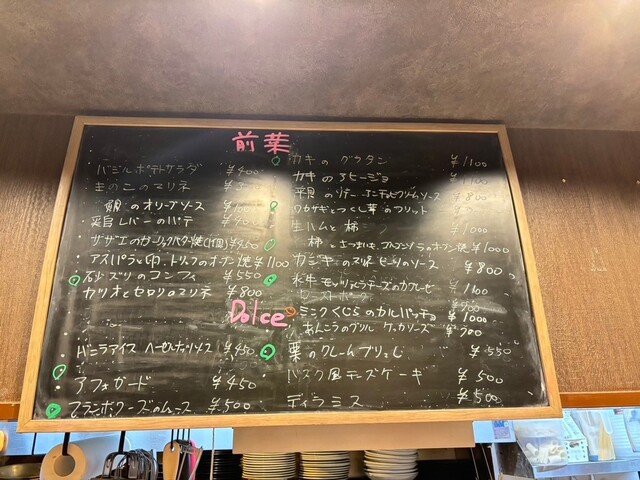 前菜
バジルポテトサラダ ¥400
きのこのマリネ
のオリーブソース
鶏レバーのパテ ¥400
サザエのガーリックバター焼
アスパラと卵、トリュフのオーブン焼 ¥1100
砂ズリのコンフィ ¥550
カツオとセロリのマリネ ¥800
カキのグラタン ¥1100
カキのアヒージョ ¥1100
ソース ¥800
ワカサギとつくし芽のフリット
生ハムと柿 ¥1000
柿とさつまいも、ゴルゴンゾーラのオーブン焼 ¥1000
カジキのマリネ ビーツのソース ¥800
水牛モッツァレラチーズのカプレーゼ 1100
ミンククジラのカルパッチョ ¥1000
あんこうのグリル ケッカソース
Dolce
バニラアイス ヘーゼルナッツソース ¥450
アフォガード ¥450
フランボワーズのムース ¥500
栗のクレームブリュレ ¥550
バスク風チーズケーキ ¥500
ティラミス ¥500